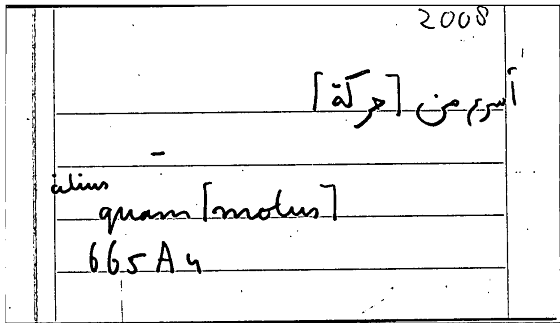 2008
أسرع من [حركة]
citius
quam [motus]
665 A 4